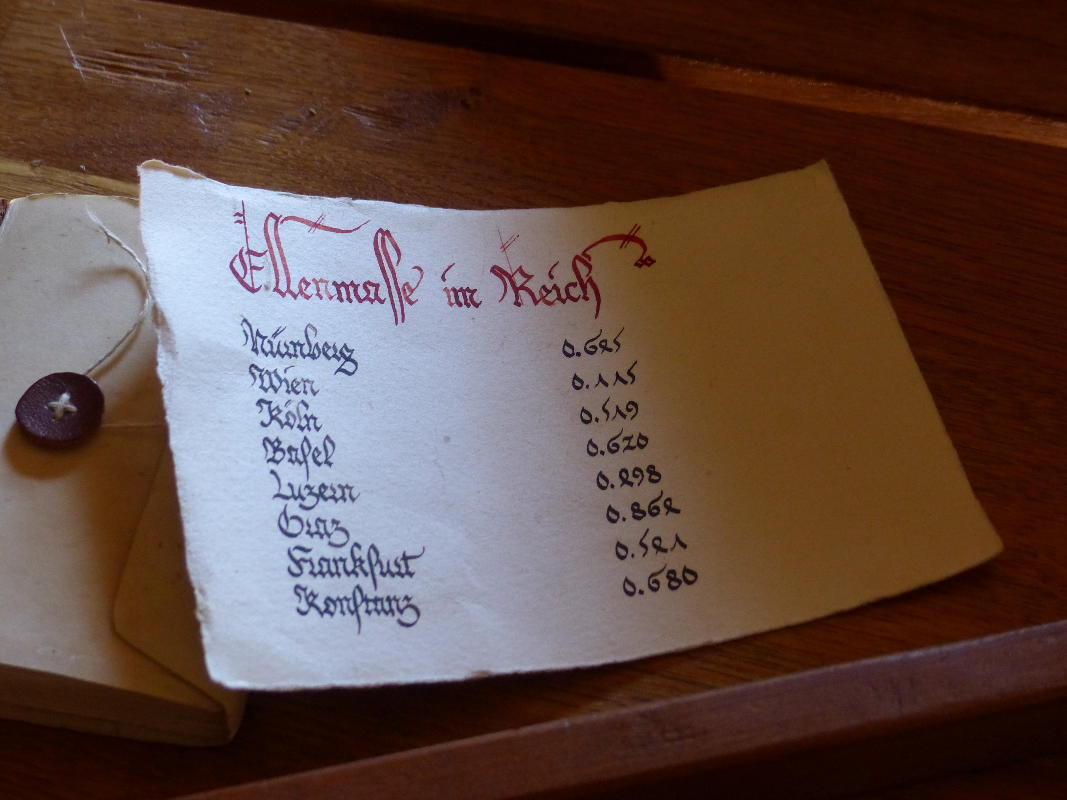 Ellenmasse im Reich
Nürnberg 0.645
Wien 0.775
Köln 0.579
Basel 0.620
Luzern 0.498
Graz 0.864
Frankfurt 0.547
Konstanz 0.680